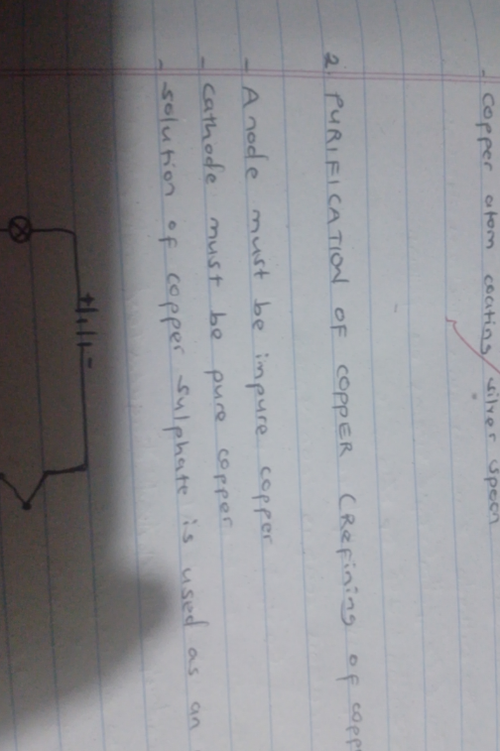 - copper atom coating silver spoon
2. PURIFICATION OF COPPER (Refining of copp
- Anode must be impure copper
- cathode must be pure copper
- solution of copper sulphate is used as an
+ -